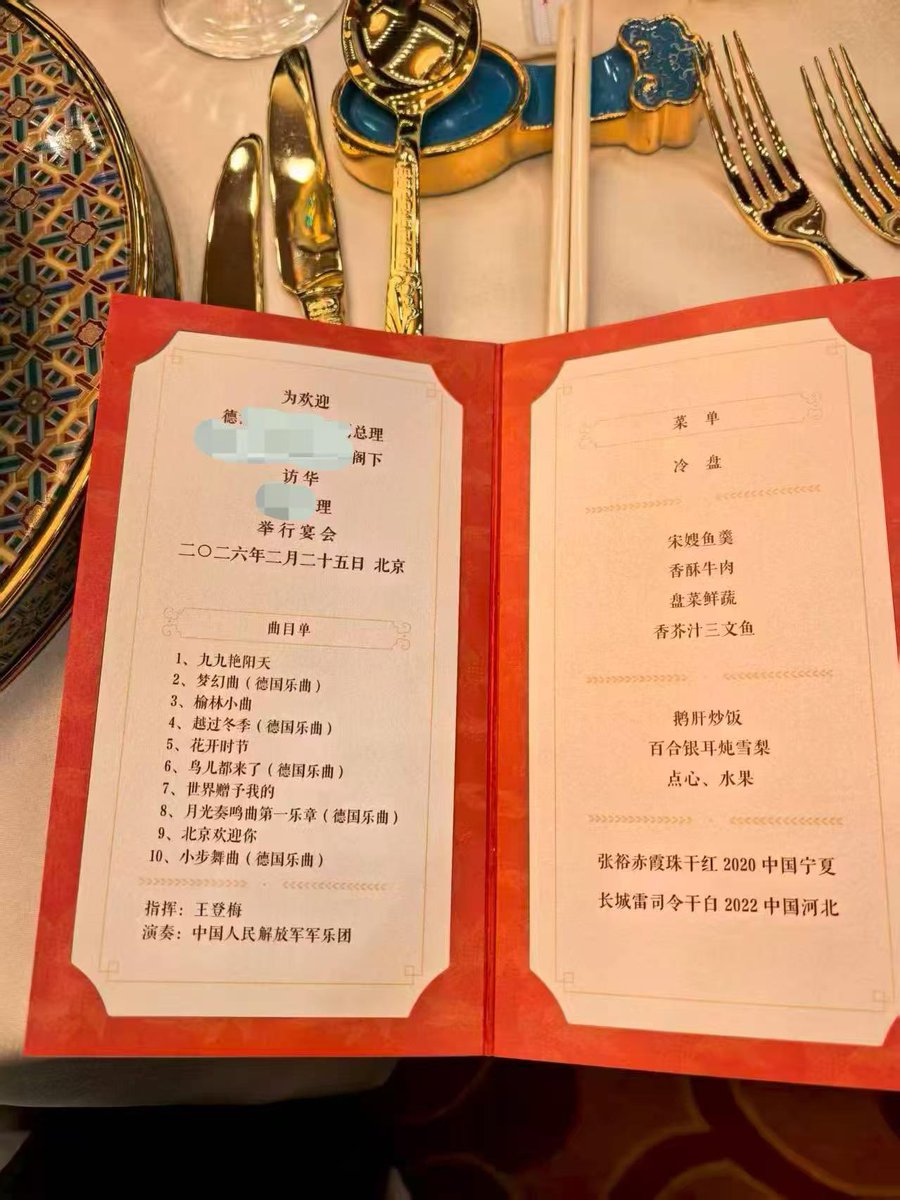 为欢迎
德
总理
阁下
访华
理
举行宴会
二〇二六年二月二十五日 北京
曲目单
1、九九艳阳天
2、梦幻曲（德国乐曲）
3、榆林小曲
4、越过冬季（德国乐曲）
5、花开时节
6、鸟儿都来了（德国乐曲）
7、世界赠予我的
8、月光奏鸣曲第一乐章（德国乐曲）
9、北京欢迎你
10、小步舞曲（德国乐曲）
指挥：王登梅
演奏：中国人民解放军军乐团
菜 单
冷 盘
宋嫂鱼羹
香酥牛肉
盘菜鲜蔬
香芥汁三文鱼
鹅肝炒饭
百合银耳炖雪梨
点心、水果
张裕赤霞珠干红 2020 中国宁夏
长城雷司令干白 2022 中国河北